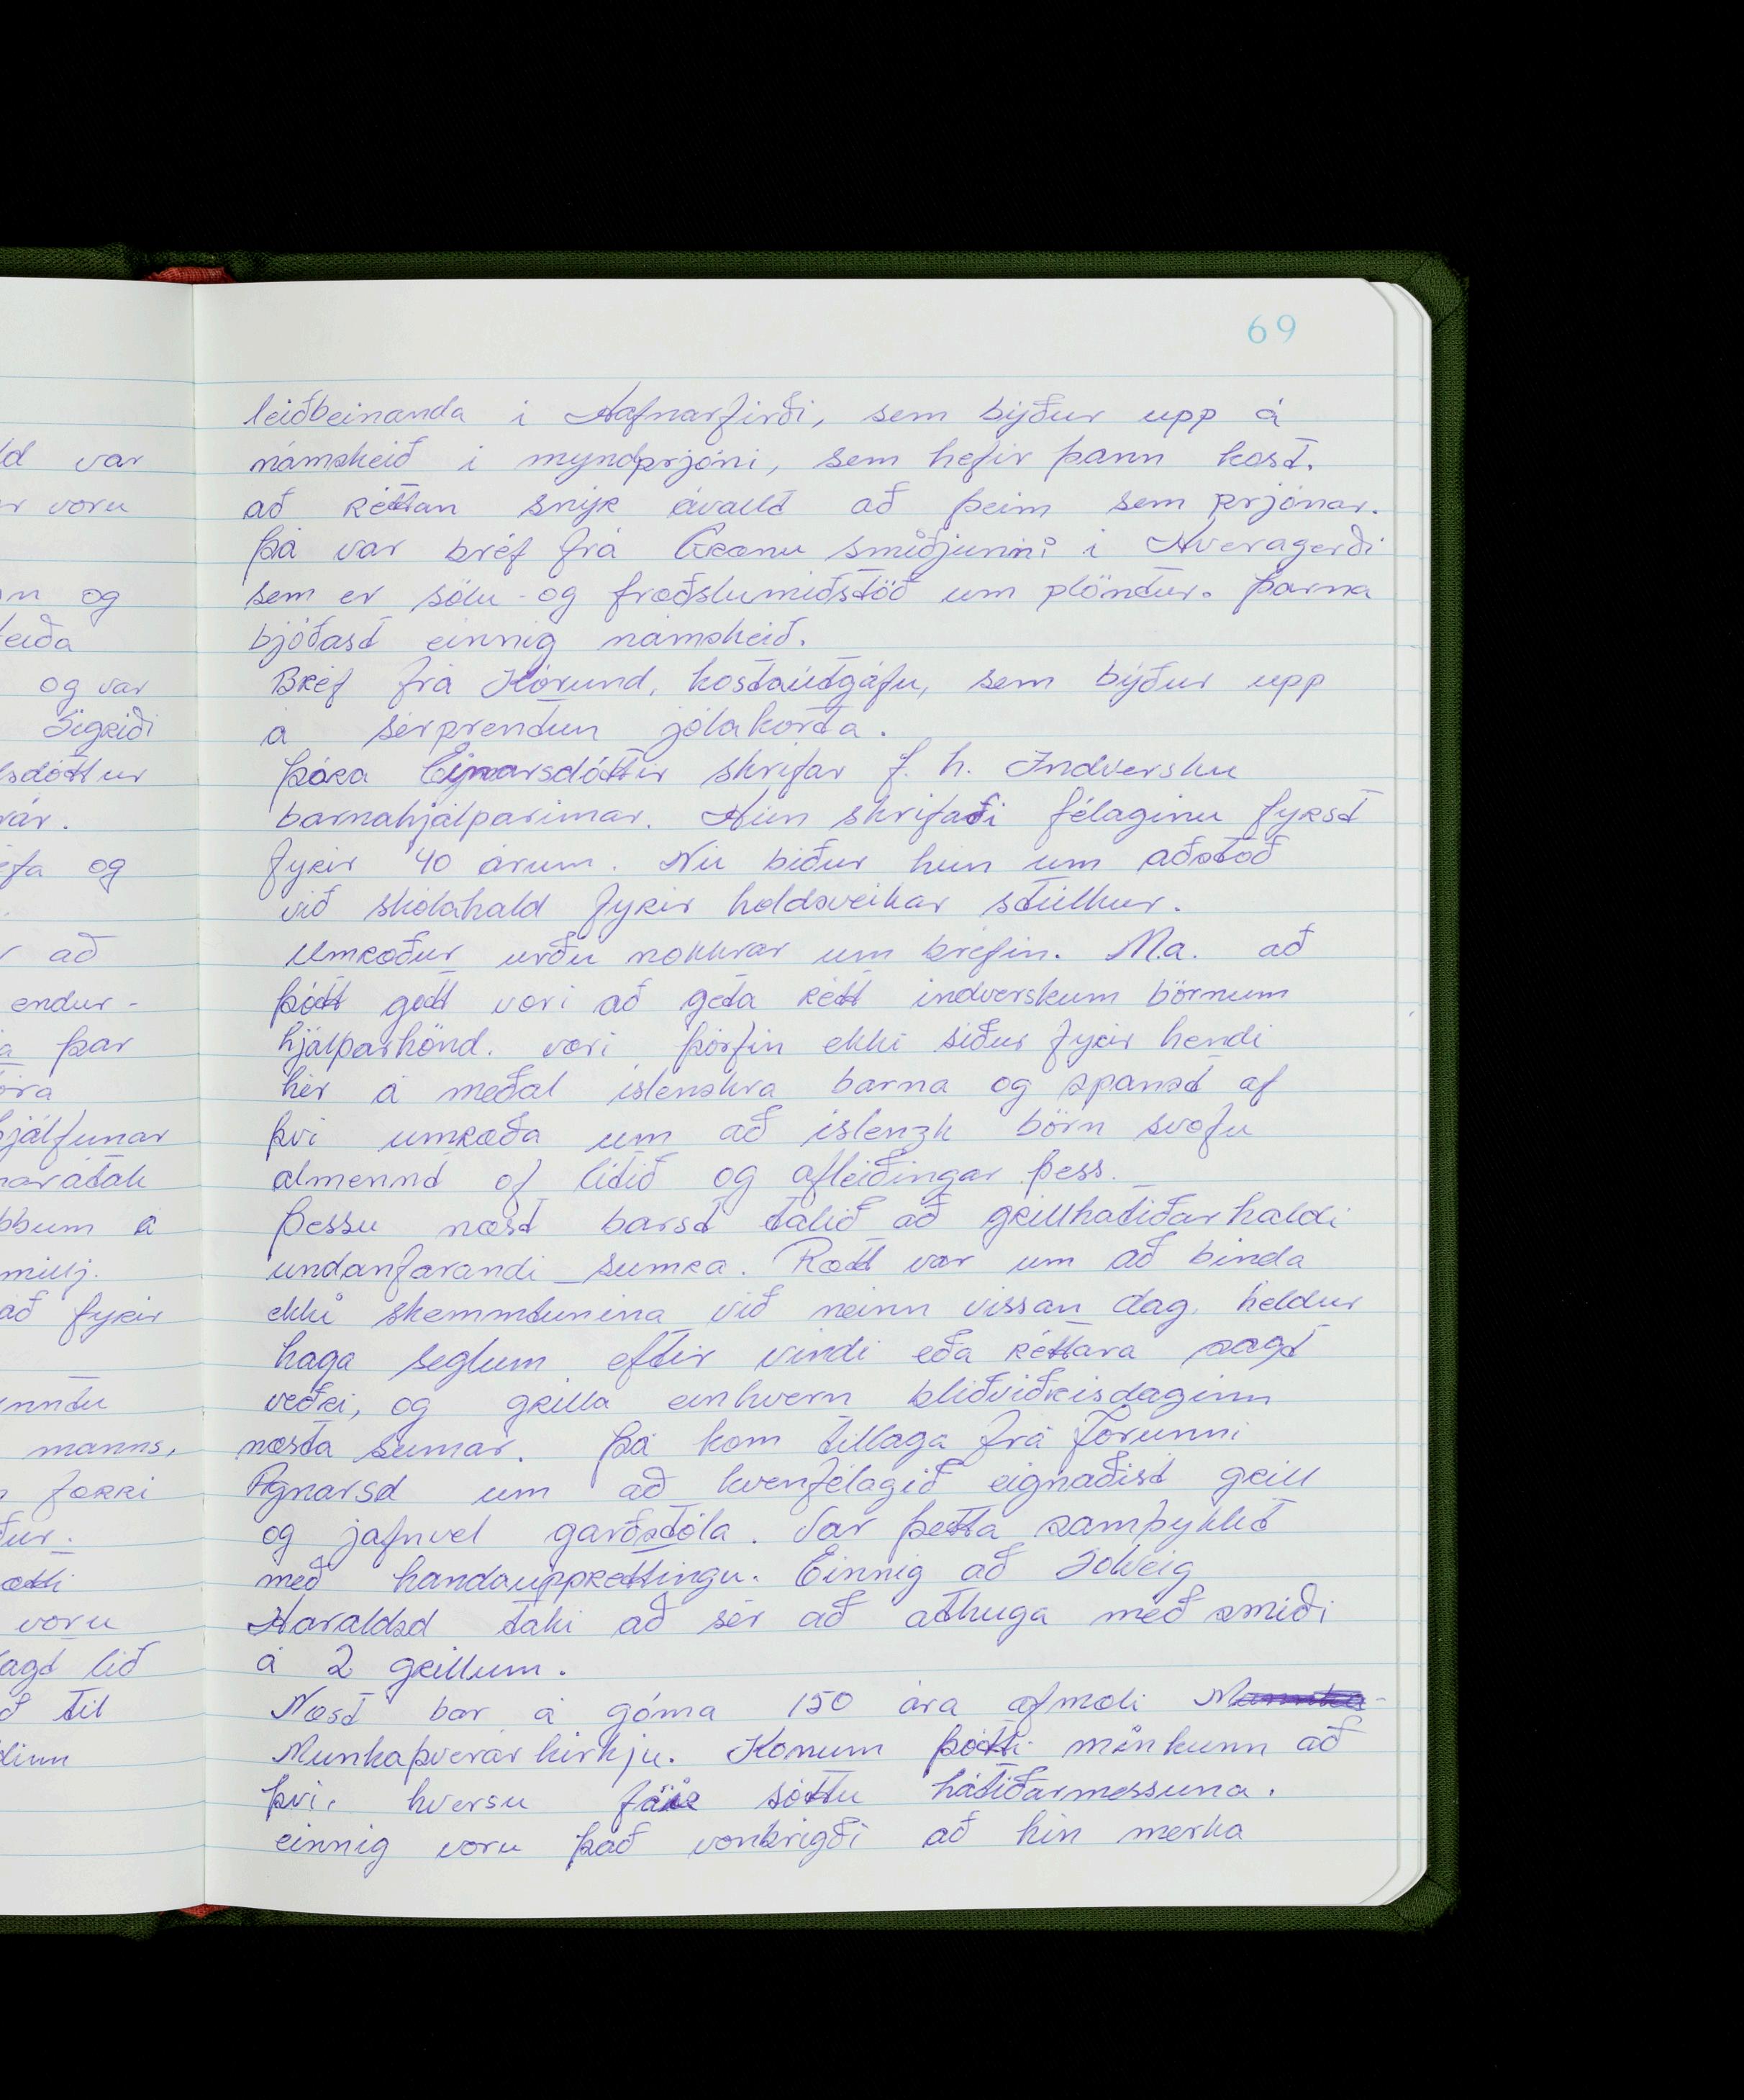 69
leiðbeinanda í Hafnarfirði, sem býður upp á
námskeið í myndprjóni, sem hefir þann kost.
að réttan snýr ávallt að þeim sem prjónar.
Þá var bréf frá Grænu smiðjunni í Hveragerði
sem er sölu- og fræðslumiðstöð um plöntur. Þarna
bjóðast einnig námskeið.
Bréf frá Kórund, kortaútgáfu, sem býður upp
á sérprentun jólakorta.
Þóra Einarsdóttir skrifar f. h. Indversku
barnahjálparinnar. Hún skrifaði félaginu fyrst
fyrir 40 árum. Nú biður hún um aðstoð
við skólahald fyrir holdsveikar stúlkur.
Umræður urðu nokkrar um bréfin. M.a. að
þótt gott væri að geta rétt indverskum börnum
hjálparhönd. væri þörfin ekki síður fyrir hendi
hér á meðal íslenskra barna og spanst af
því umræða um að íslenzk börn svæfu
almennt of lítið og afleiðingar þess.
Þessu næst barst talið að grillhátíðarhaldi
undanfarandi sumra. Rætt var um að binda
ekki skemmtunina við neinn vissan dag, heldur
haga seglum eftir vindi eða réttara sagt
veðri, og grilla einhvern blíðviðrisdaginn
næsta sumar. Þá kom tillaga frá Jórunni
Agnarsd um að kvenfélagið eignaðist grill
og jafnvel garðstóla. Var þetta samþykkt
með handauppréttingu. Einnig að Solveig
Haraldsd taki að sér að athuga með smíði
á 2 grillum.
Næst bar á góma 150 ára afmæli
Munkaþverárkirkju. Konum þótti minkunn að
því, hversu fáir sóttu hátíðarmessuna.
einnig voru það vonbrigði að hin merka
ld var
r voru
og
og var
Sigríði
og
að
endur-
þar
hjálfunar
á
millj.
að fyrir
manns,
færri
voru
lið
til